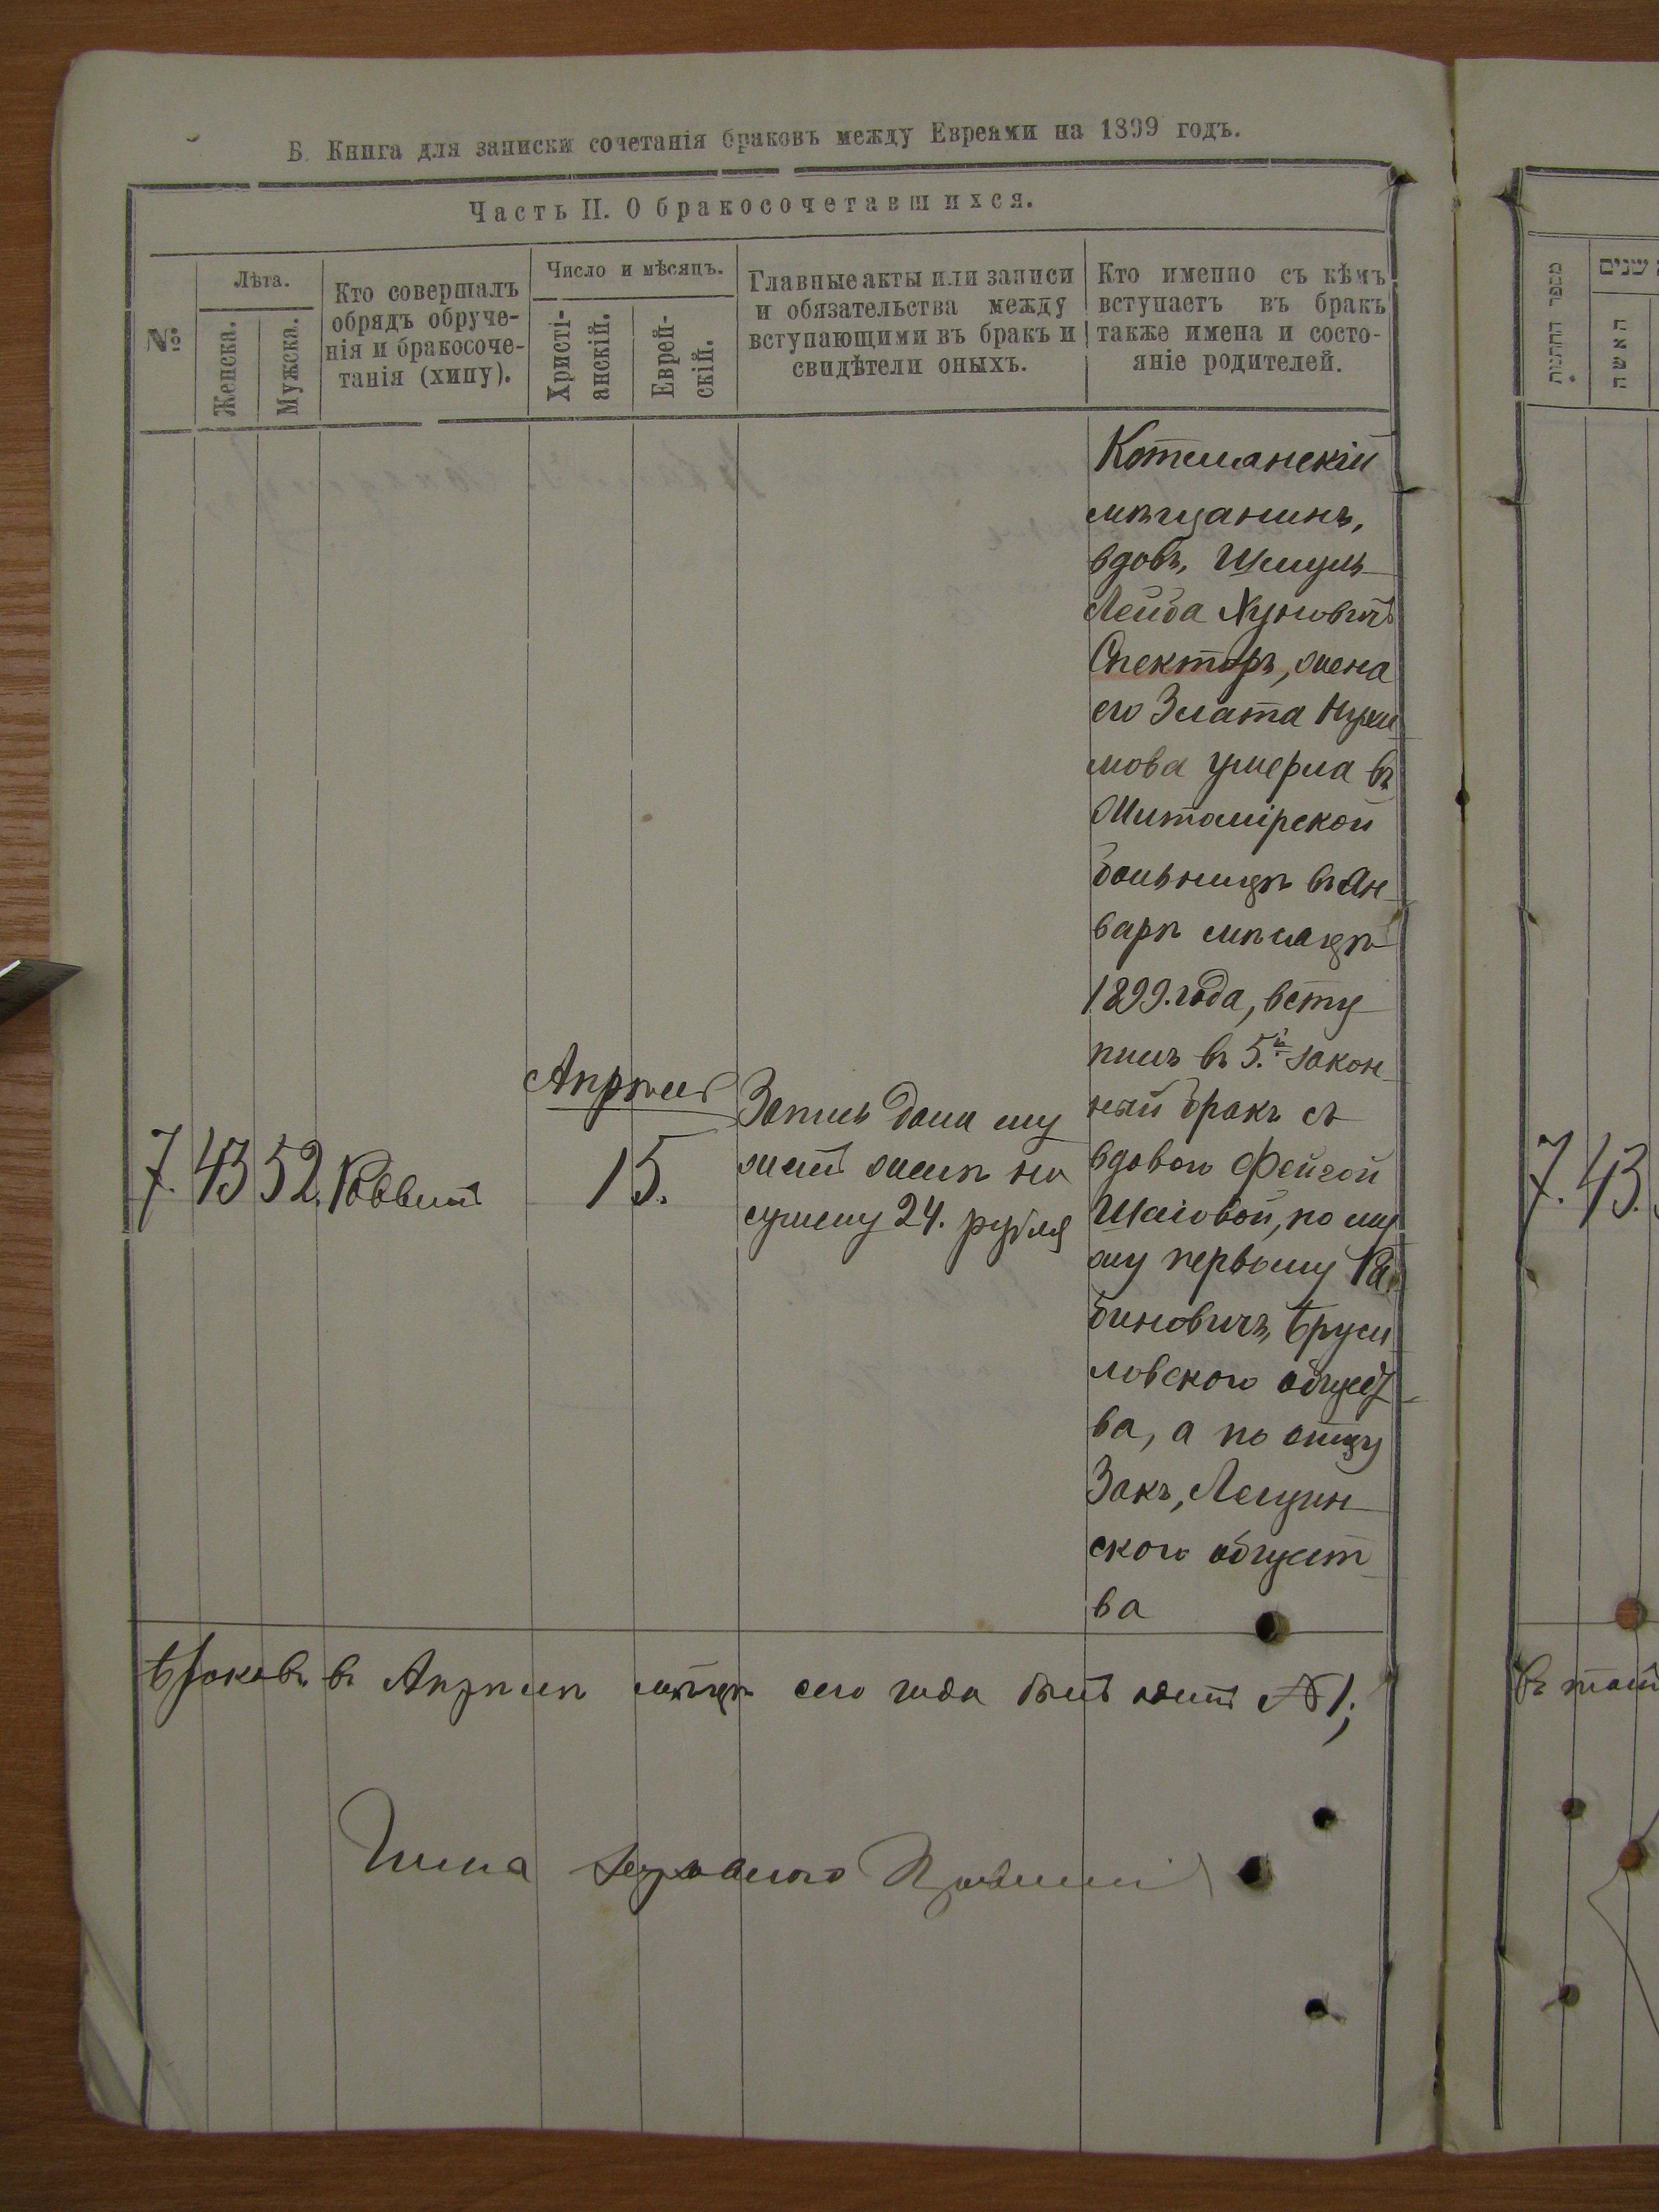 Б. Книга для записки сочетанія браковъ между Евреями на 1899 годъ.
Часть II. О бракосочетавшихся.
№
Лѣта.
Женска.
Мужска.
Кто совершалъ
обрядъ обруче-
нія и бракосоче-
танія (хипу).
Число и мѣсяцъ.
Христі-
анскій.
Еврей-
скій.
Главные акты или записи
и обязательства между
вступающими въ бракъ и
свидѣтели оныхъ.
Кто именно съ кѣмъ
вступаетъ въ бракъ
также имена и состо-
яніе родителей.
7. 43 52. Раввинъ
Апрѣль
15.
Запись дана му
жемъ женѣ на
сумму 24. рубля
мѣщанинъ,
вдов. Шмуль
Лейба Хуновичъ
Спекторъ, жена
его Злата
мова умерла въ
Житомірской
больницѣ въ Ян
варѣ мѣсяцѣ
1899. года, всту
пилъ въ 5.й закон
ный бракъ съ
вдовою Фейгой
Шаіовой, по му
жу первому Ра
биновичъ, Бруси
ловскаго общест
ва, а по отцу
Закъ, Лещин
скаго общест
ва
Браковъ въ Апрѣлѣ мѣсяцѣ сего года былъ одинъ №1;
מספר החתונות
שנים
האשה
7. 43.